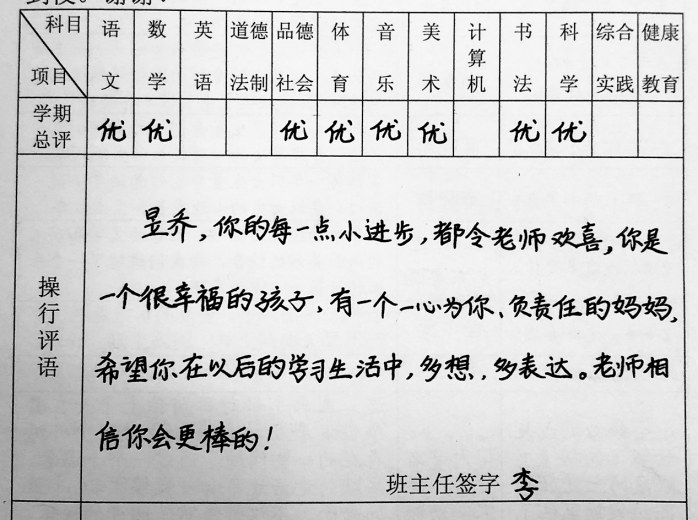 到校。谢谢！
科目 语 数 英 道德 品德 体 音 美 计算机 书 科 综合 健康
项目 文 学 语 法制 社会 育 乐 术 法 学 实践 教育
学期总评 优 优 优 优 优 优 优 优
操行评语
昱乔，你的每一点小进步，都令老师欢喜，你是
一个很幸福的孩子，有一个一心为你、负责任的妈妈，
希望你在以后的学习生活中，多想，多表达。老师相
信你会更棒的！
班主任签字 李